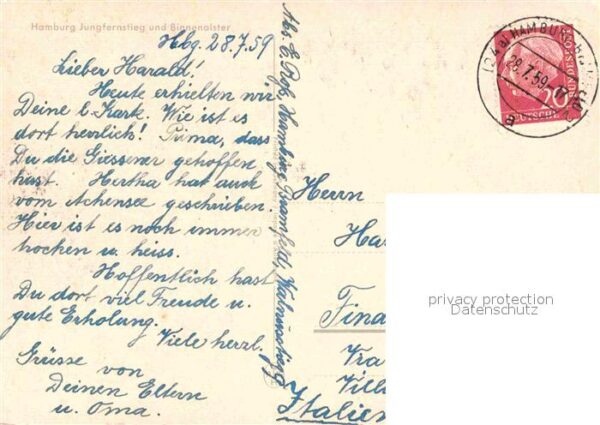 Hamburg Jungfernstieg und Binnenalster
Hbg. 28.7.59
Lieber Harald!
Heute erhielten wir
Deine l. Karte. Wie ist es
dort herrlich! Prima, dass
Du die getroffen
hast. Hertha hat auch
vom Achensee geschrieben.
Hier ist es noch immer
trocken u. heiss.
Hoffentlich hast
Du dort viel Freude u.
gute Erholung.
Viele herzl.
Grüsse von
Deinen Eltern
u. Oma.
Abs. E. Hamburg Bramfeld,
Herrn
Ha
Fina
Via
Vill
Italien
(24a) HAMBURG
28.7.59
20
DEUTSCHE
privacy protection
Datenschutz